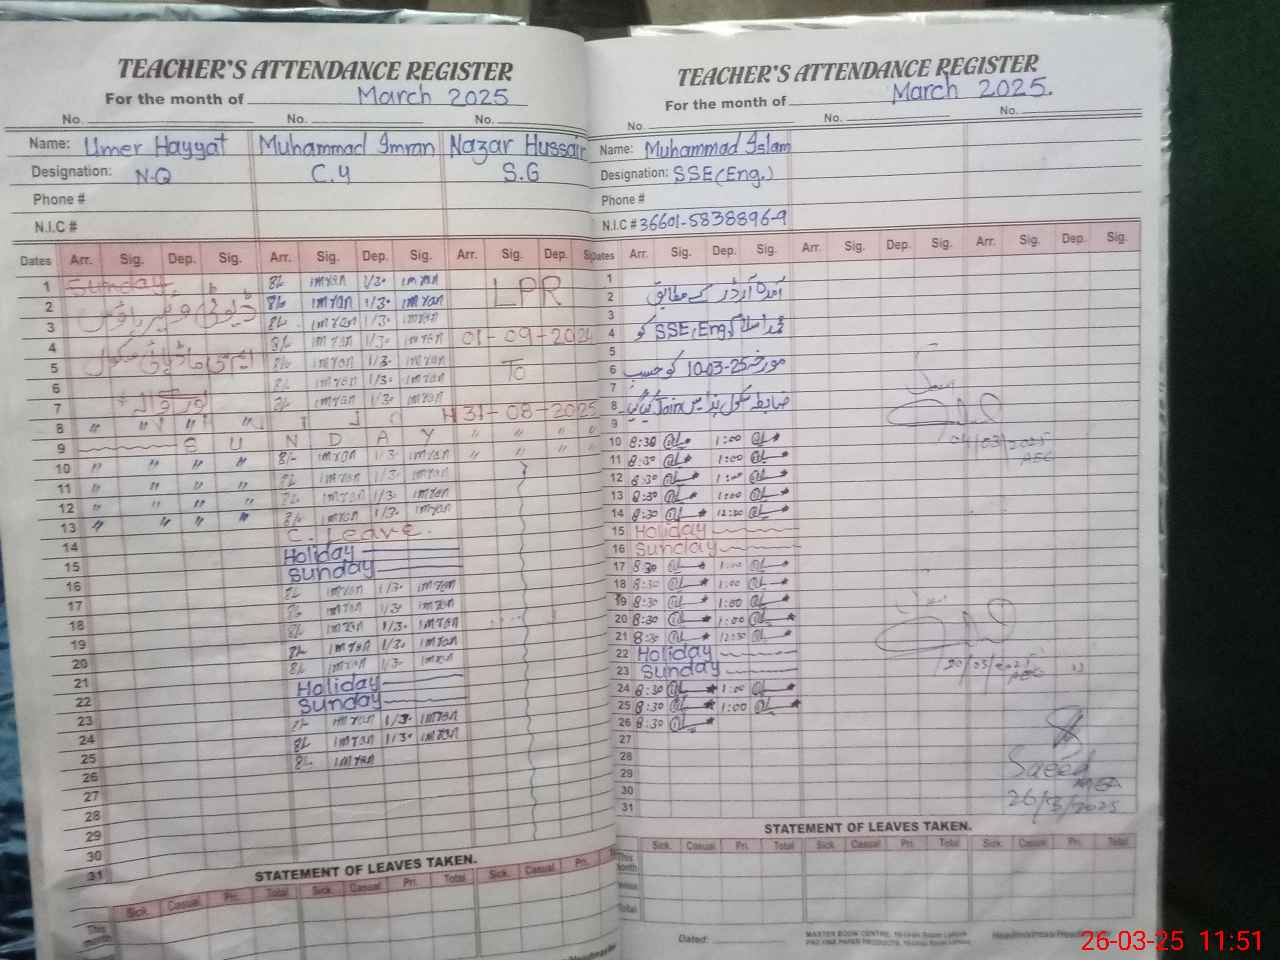 TEACHER'S ATTENDANCE REGISTER
For the month of March 2025
No. No. No.
Name: Umer Hayyat Muhammad Imran Nazar Hussain
Designation: N.Q C.4 S.G
Phone #
N.I.C #
Dates Arr. Sig. Dep. Sig. Arr. Sig. Dep. Sig. Arr. Sig. Dep.
1 Sunday 8/- imran 1/30 imran LPR
2 8/- imran 1/30 imran
3 8/- imran 1/30 imran
4 8/- imran 1/30 imran 01-09-2024
5 8/- imran 1/30 imran To
6 8/- imran 1/30 imran
7 8/- imran 1/30 imran 31-08-2025
8 " " " "
9 S U N D A Y " " " "
10 " " " " 8/- imran 1/30 imran
11 " " " " 8/- imran 1/30 imran
12 " " " " 8/- imran 1/30 imran
13 " " " " 8/- imran 1/30 imran
14 C. Leave.
15 Holiday
16 Sunday
17 8/- imran 1/30 imran
18 8/- imran 1/30 imran
19 8/- imran 1/30 imran
20 8/- imran 1/30 imran
21 8/- imran 1/30 imran
22 Holiday
23 Sunday
24 8/- imran 1/30 imran
25 8/- imran 1/30 imran
26 8/- imran
27
28
29
30
31
STATEMENT OF LEAVES TAKEN.
Sick. Casual Pri. Total Sick. Casual Pri. Total Sick. Casual Pri.
This month
TEACHER'S ATTENDANCE REGISTER
For the month of March 2025.
No. No. No.
Name: Muhammad Islam
Designation: SSE(Eng.)
Phone #
N.I.C # 36601-5838896-9
Dates Arr. Sig. Dep. Sig. Arr. Sig. Dep. Sig. Arr. Sig. Dep. Sig.
1
2 آمدہ آرڈر کے مطابق
3
4 محمد اسلام SSE(Eng) کو
5
6 مورخہ 10-03-25 کو حسب
7
8 ضابطہ سکول ہذا میں Join
9
04/03/2025
AEO
10 8:30 1:00
11 8:30 1:00
12 8:30 1:00
13 8:30 1:00
14 8:30 12:30
15 Holiday
16 Sunday
17 8:30 1:00
18 8:30 1:00
19 8:30 1:00
20 8:30 1:00
21 8:30 12:30
22 Holiday
20/03/2025
AEO
23 Sunday
24 8:30 1:00
25 8:30 1:00
26 8:30
27
28 Saeed
29 MEA
30 26/3/2025
31
STATEMENT OF LEAVES TAKEN.
Sick. Casual Pri. Total Sick. Casual Pri. Total Sick. Casual Pri. Total
This Month
Total
Dated:
MASTER BOOK CENTRE,
26-03-25 11:51